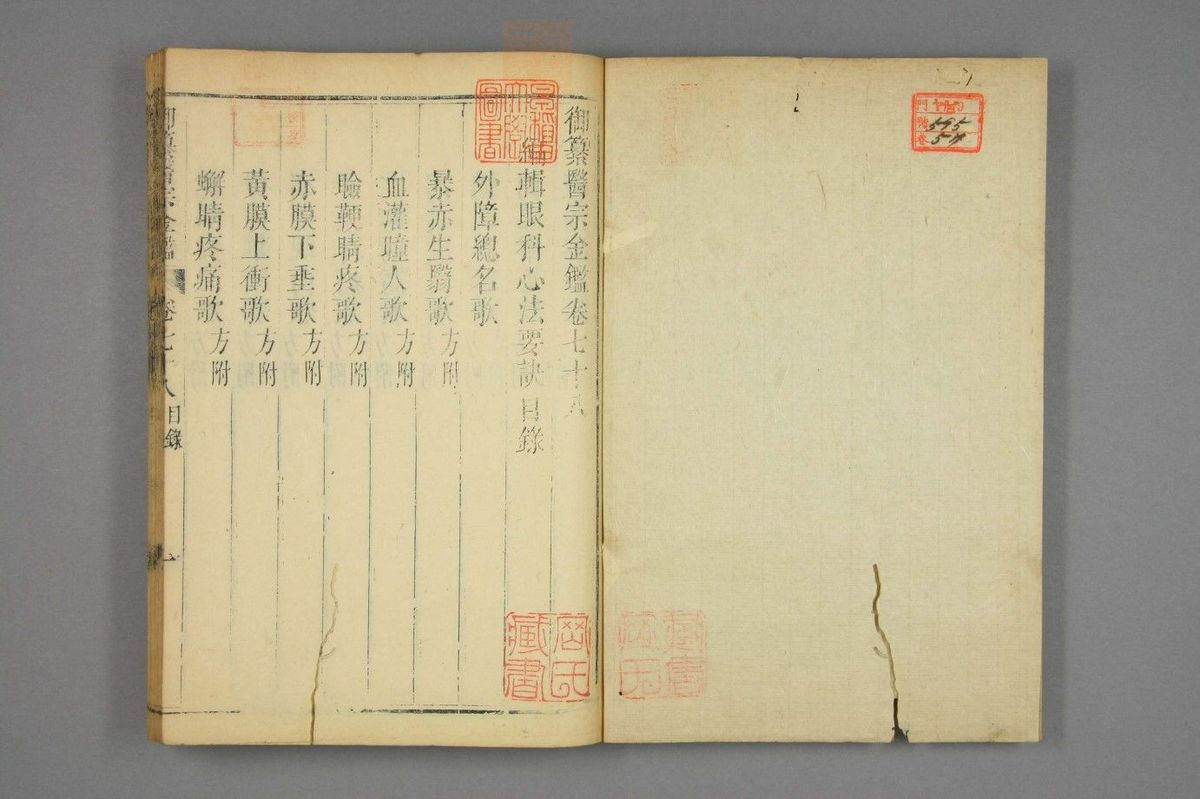 御纂醫宗金鑑卷七十八
編輯眼科心法要訣目錄
外障總名歌
暴赤生翳歌 方附
血灌瞳人歌 方附
瞼鞕睛疼歌 方附
赤膜下垂歌 方附
黃膜上衝歌 方附
蠏睛疼痛歌 方附
御纂醫宗金鑑 卷七十八 目錄 一
早稻田大學圖書
岡氏藏書
門
號 595
卷 54